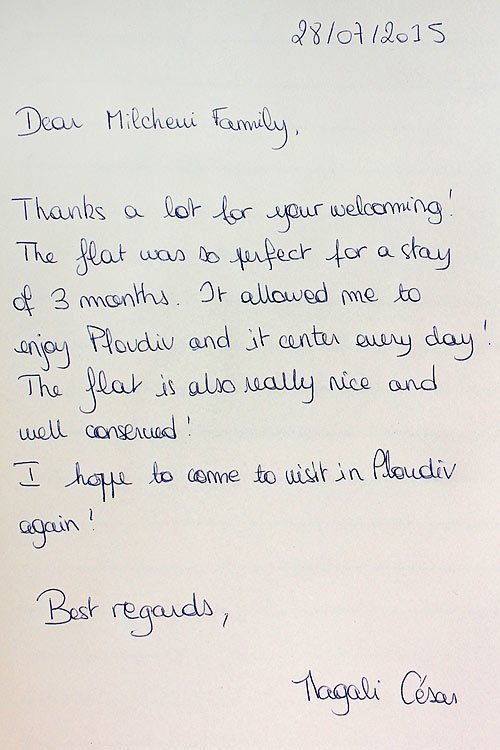 28/07/2015
Dear Milcheui Family,
Thanks a lot for your welcoming!
The flat was so perfect for a stay
of 3 months. It allowed me to
enjoy Ploudiv and it center every day!
The flat is also really nice and
well conserved!
I hoppe to come to visit in Ploudiv
again!
Best regards,
Magali César